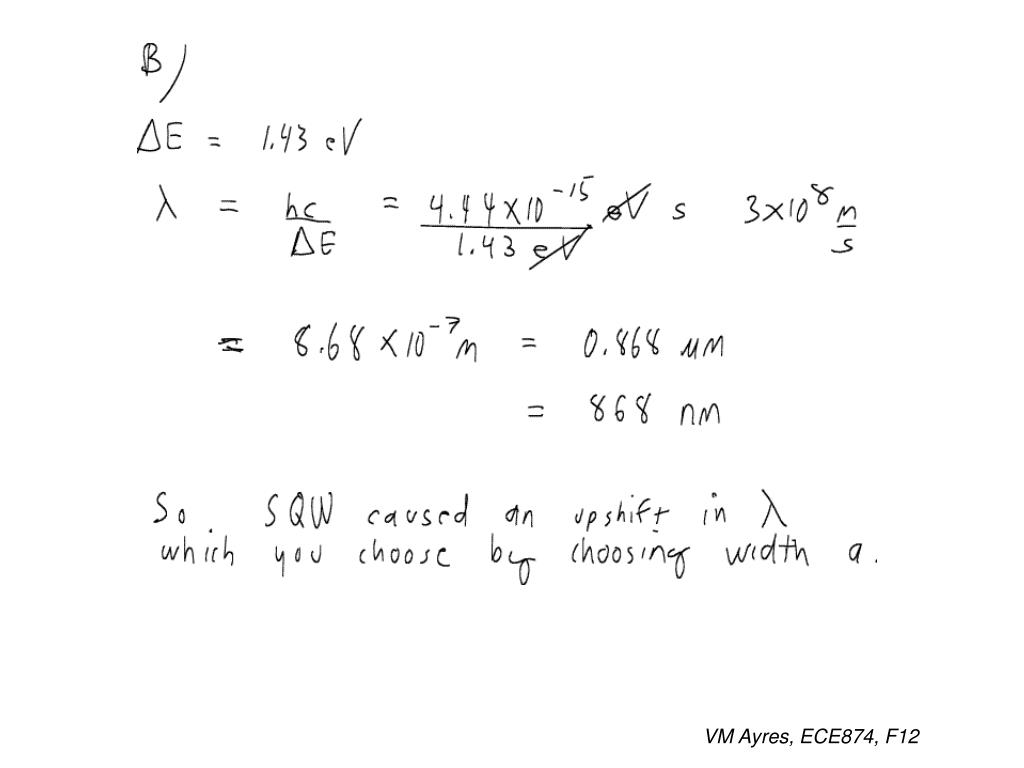 B)
ΔE = 1.43 eV
λ = hc/ΔE = 4.14×10^-15 eV s / 1.43 eV 3×10^8 m/s
= 8.68 ×10^-7 m = 0.868 μm
= 868 nm
So SQW caused an upshift in λ
which you choose by choosing width a.
VM Ayres, ECE874, F12